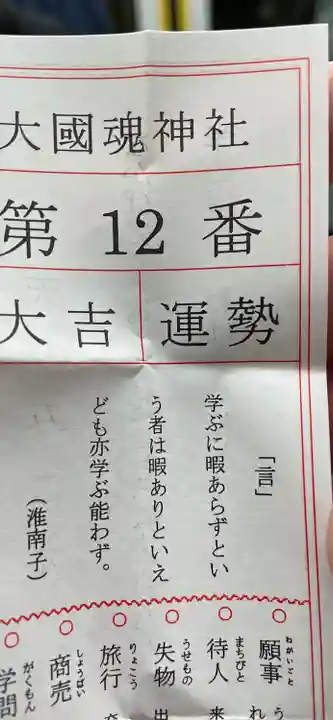 大國魂神社
第 12 番
運勢 大吉
「一言」
学ぶに暇あらずとい
う者は暇ありといえ
ども亦学ぶ能わず。
(淮南子)
願事 ねがいごと
待人 まちびと 来
失物 うせもの 出
旅行 りょこう
商売 しょうばい
学問 がくもん